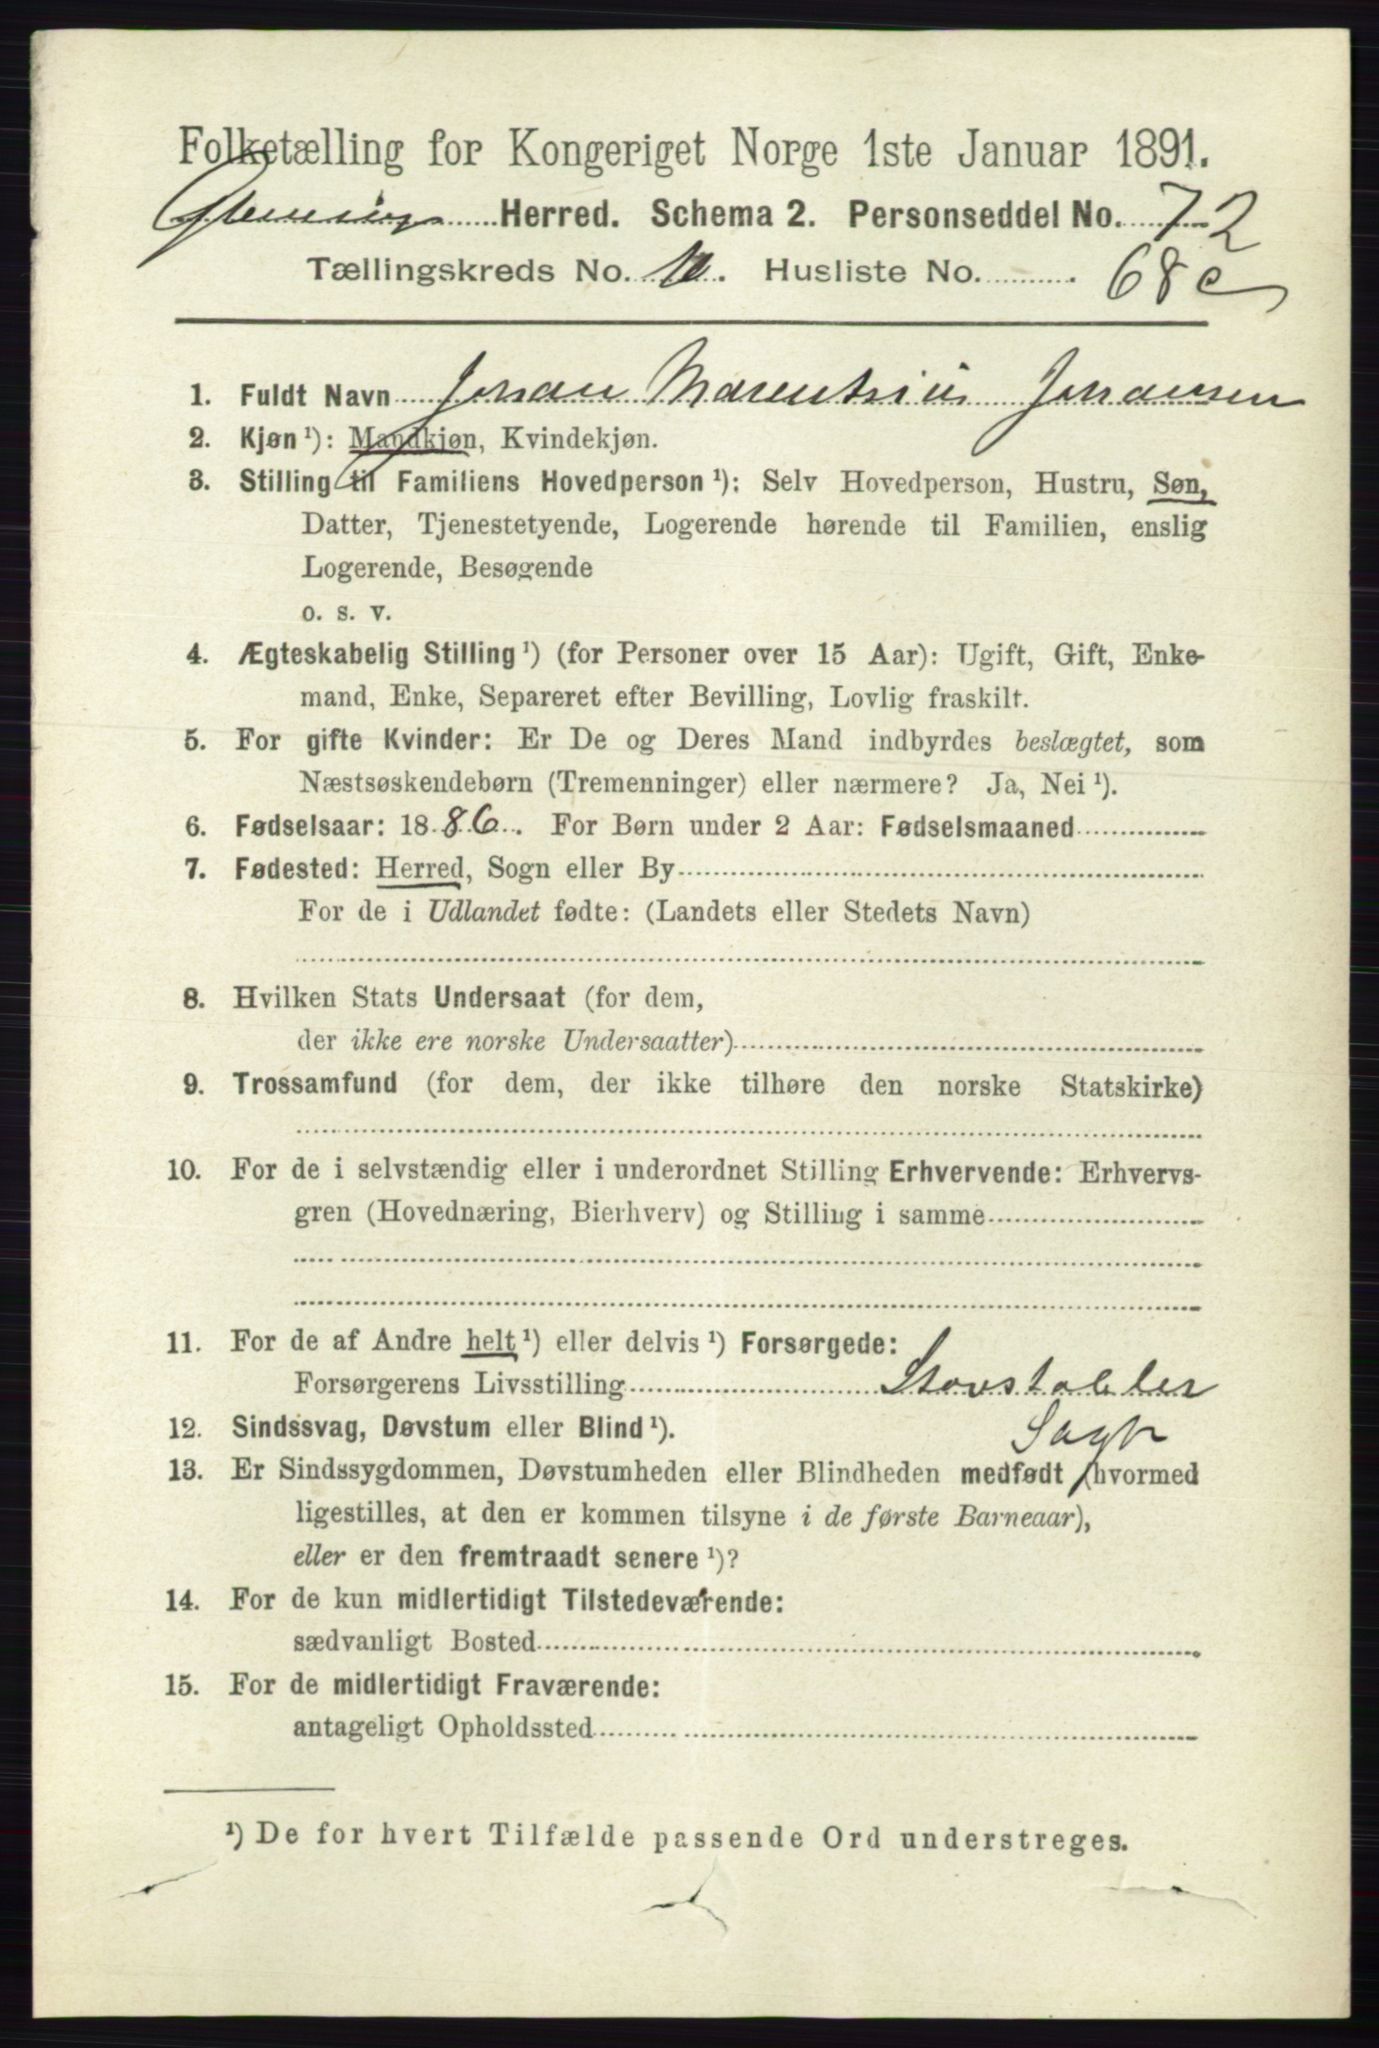 Folketælling for Kongeriget Norge 1ste Januar 1891.
Glemminge Herred. Schema 2. Personseddel No. 72
Tællingskreds No. 10. Husliste No. 68 c
1. Fuldt Navn Johan Marentsius Johansen
2. Kjøn ¹): Mandkjøn, Kvindekjøn.
3. Stilling til Familiens Hovedperson ¹): Selv Hovedperson, Hustru, Søn,
Datter, Tjenestetyende, Logerende hørende til Familien, enslig
Logerende, Besøgende
o. s. v.
4. Ægteskabelig Stilling ¹) (for Personer over 15 Aar): Ugift, Gift, Enke-
mand, Enke, Separeret efter Bevilling, Lovlig fraskilt.
5. For gifte Kvinder: Er De og Deres Mand indbyrdes beslægtet, som
Næstsøskendebørn (Tremenninger) eller nærmere? Ja, Nei ¹).
6. Fødselsaar: 1886. For Børn under 2 Aar: Fødselsmaaned
7. Fødested: Herred, Sogn eller By
For de i Udlandet fødte: (Landets eller Stedets Navn)
8. Hvilken Stats Undersaat (for dem,
der ikke ere norske Undersaatter)
9. Trossamfund (for dem, der ikke tilhøre den norske Statskirke)
10. For de i selvstændig eller i underordnet Stilling Erhvervende: Erhvervs-
gren (Hovednæring, Bierhverv) og Stilling i samme
11. For de af Andre helt ¹) eller delvis ¹) Forsørgede:
Forsørgerens Livsstilling Stovstabler
12. Sindssvag, Døvstum eller Blind ¹). Sagbr
13. Er Sindssygdommen, Døvstumheden eller Blindheden medfødt (hvormed
ligestilles, at den er kommen tilsyne i de første Barneaar),
eller er den fremtraadt senere ¹)?
14. For de kun midlertidigt Tilstedeværende:
sædvanligt Bosted
15. For de midlertidigt Fraværende:
antageligt Opholdssted
¹) De for hvert Tilfælde passende Ord understreges.